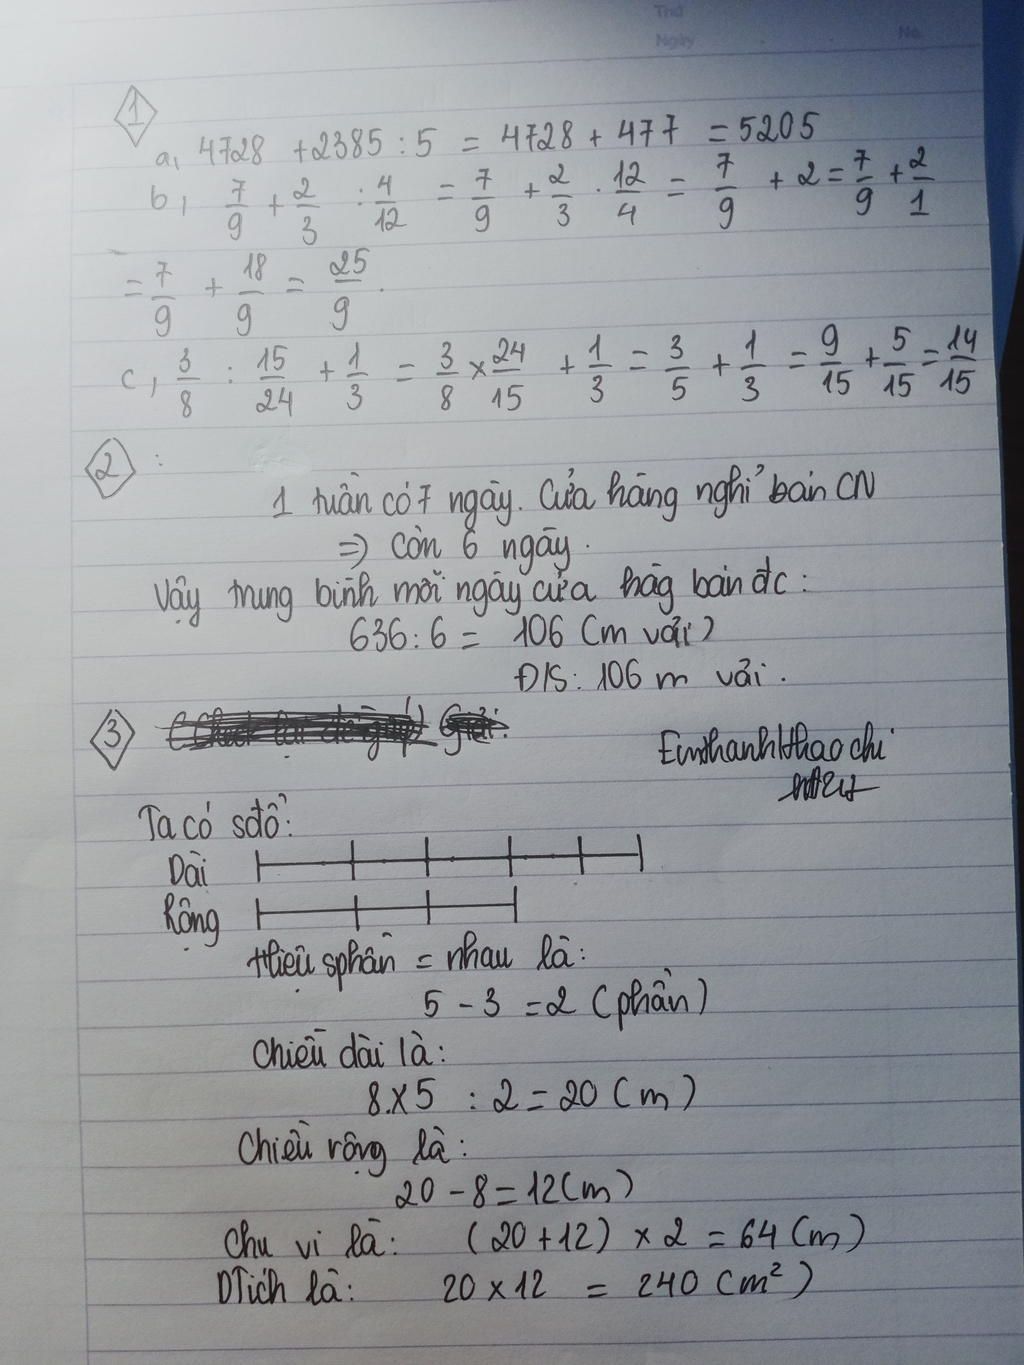 Thứ
Ngày . . No.
1
a, 4728 + 2385 : 5 = 4728 + 477 = 5205
b, 7/9 + 2/3 : 4/12 = 7/9 + 2/3 . 12/4 = 7/9 + 2 = 7/9 + 2/1
= 7/9 + 18/9 = 25/9.
c, 3/8 : 15/24 + 1/3 = 3/8 × 24/15 + 1/3 = 3/5 + 1/3 = 9/15 + 5/15 = 14/15
2 :
1 tuần có 7 ngày. Cửa hàng nghỉ bán CN
=> Còn 6 ngày.
Vậy trung bình mỗi ngày cửa hàg bán đc:
636 : 6 = 106 (m vải)
Đ/S: 106 m vải.
3
Ta có sđồ:
Dài
Rộng
Hiệu sphần = nhau là:
5 - 3 = 2 (phần)
Chiều dài là:
8 . × 5 : 2 = 20 (m)
Chiều rộng là:
20 - 8 = 12 (m)
Chu vi là: (20 + 12) × 2 = 64 (m)
DTích là: 20 × 12 = 240 (m²)